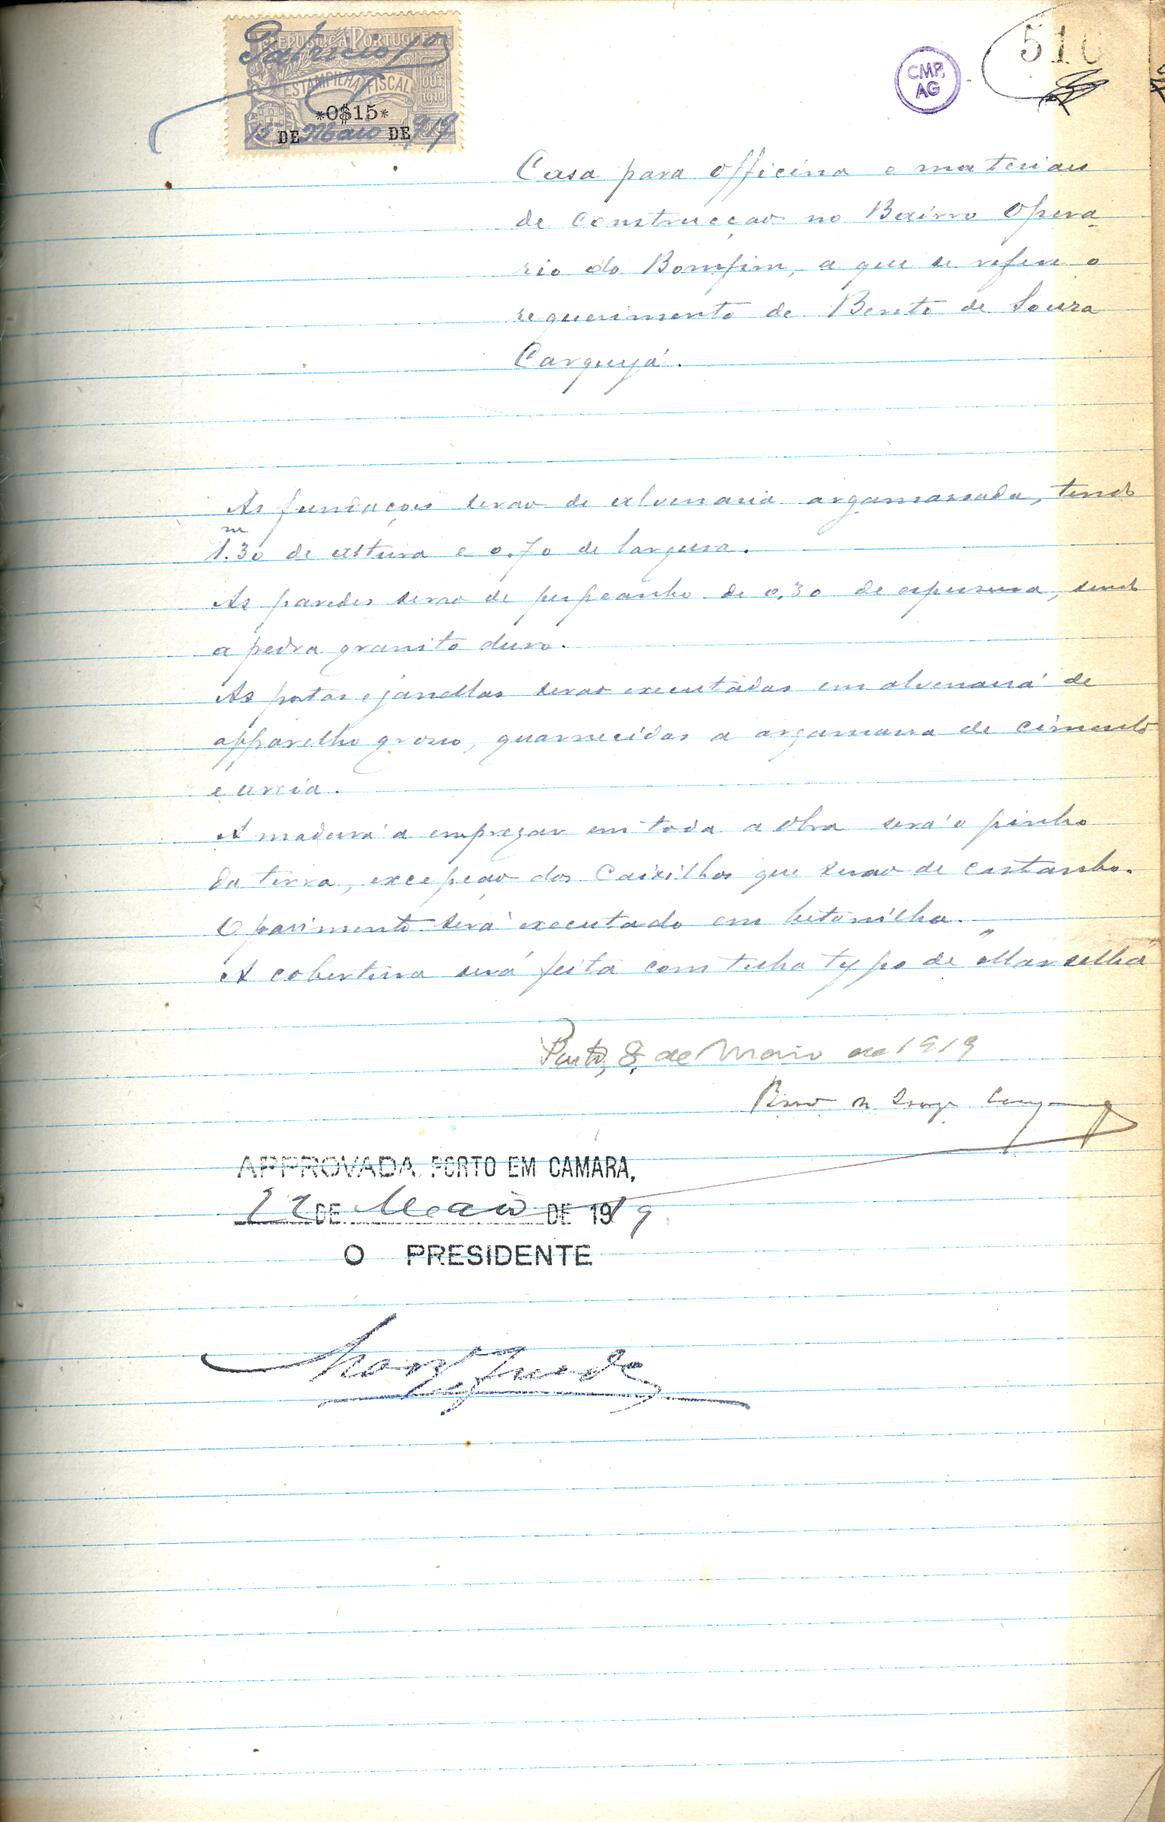 510
CMP.
AG
REPUBLICA PORTUGUESA
ESTAMPILHA FISCAL
OUT
1910
*0$15*
15 DE Maio DE 919
Casa para officina e materiaes
de construcção no Bairro Opera
rio do Bomfim, a que se refere o
requerimento de Bento de Souza
Carqueja.
As fundações serão de alvenaria argamassada, tendo
1.30 de altura e 0.70 de largura.
m
As paredes serão de perpeanho de 0,30 de espessura, sendo
a pedra granito duro.
As portas e janellas serão executadas em alvenaria de
apparelho grosso, guarnecidas a argamassa de cimento
e areia.
A madeira a empregar em toda a obra será o pinho
da terra, excepção dos caixilhos que serão de castanho.
O pavimento será executado em betonilha.
A cobertura será feita com telha typo de "Marselha
Porto, 8 de Maio de 1919
Bento de Souza Carqueja
APPROVADA. PORTO EM CAMARA,
22 DE Maio DE 1919
O PRESIDENTE